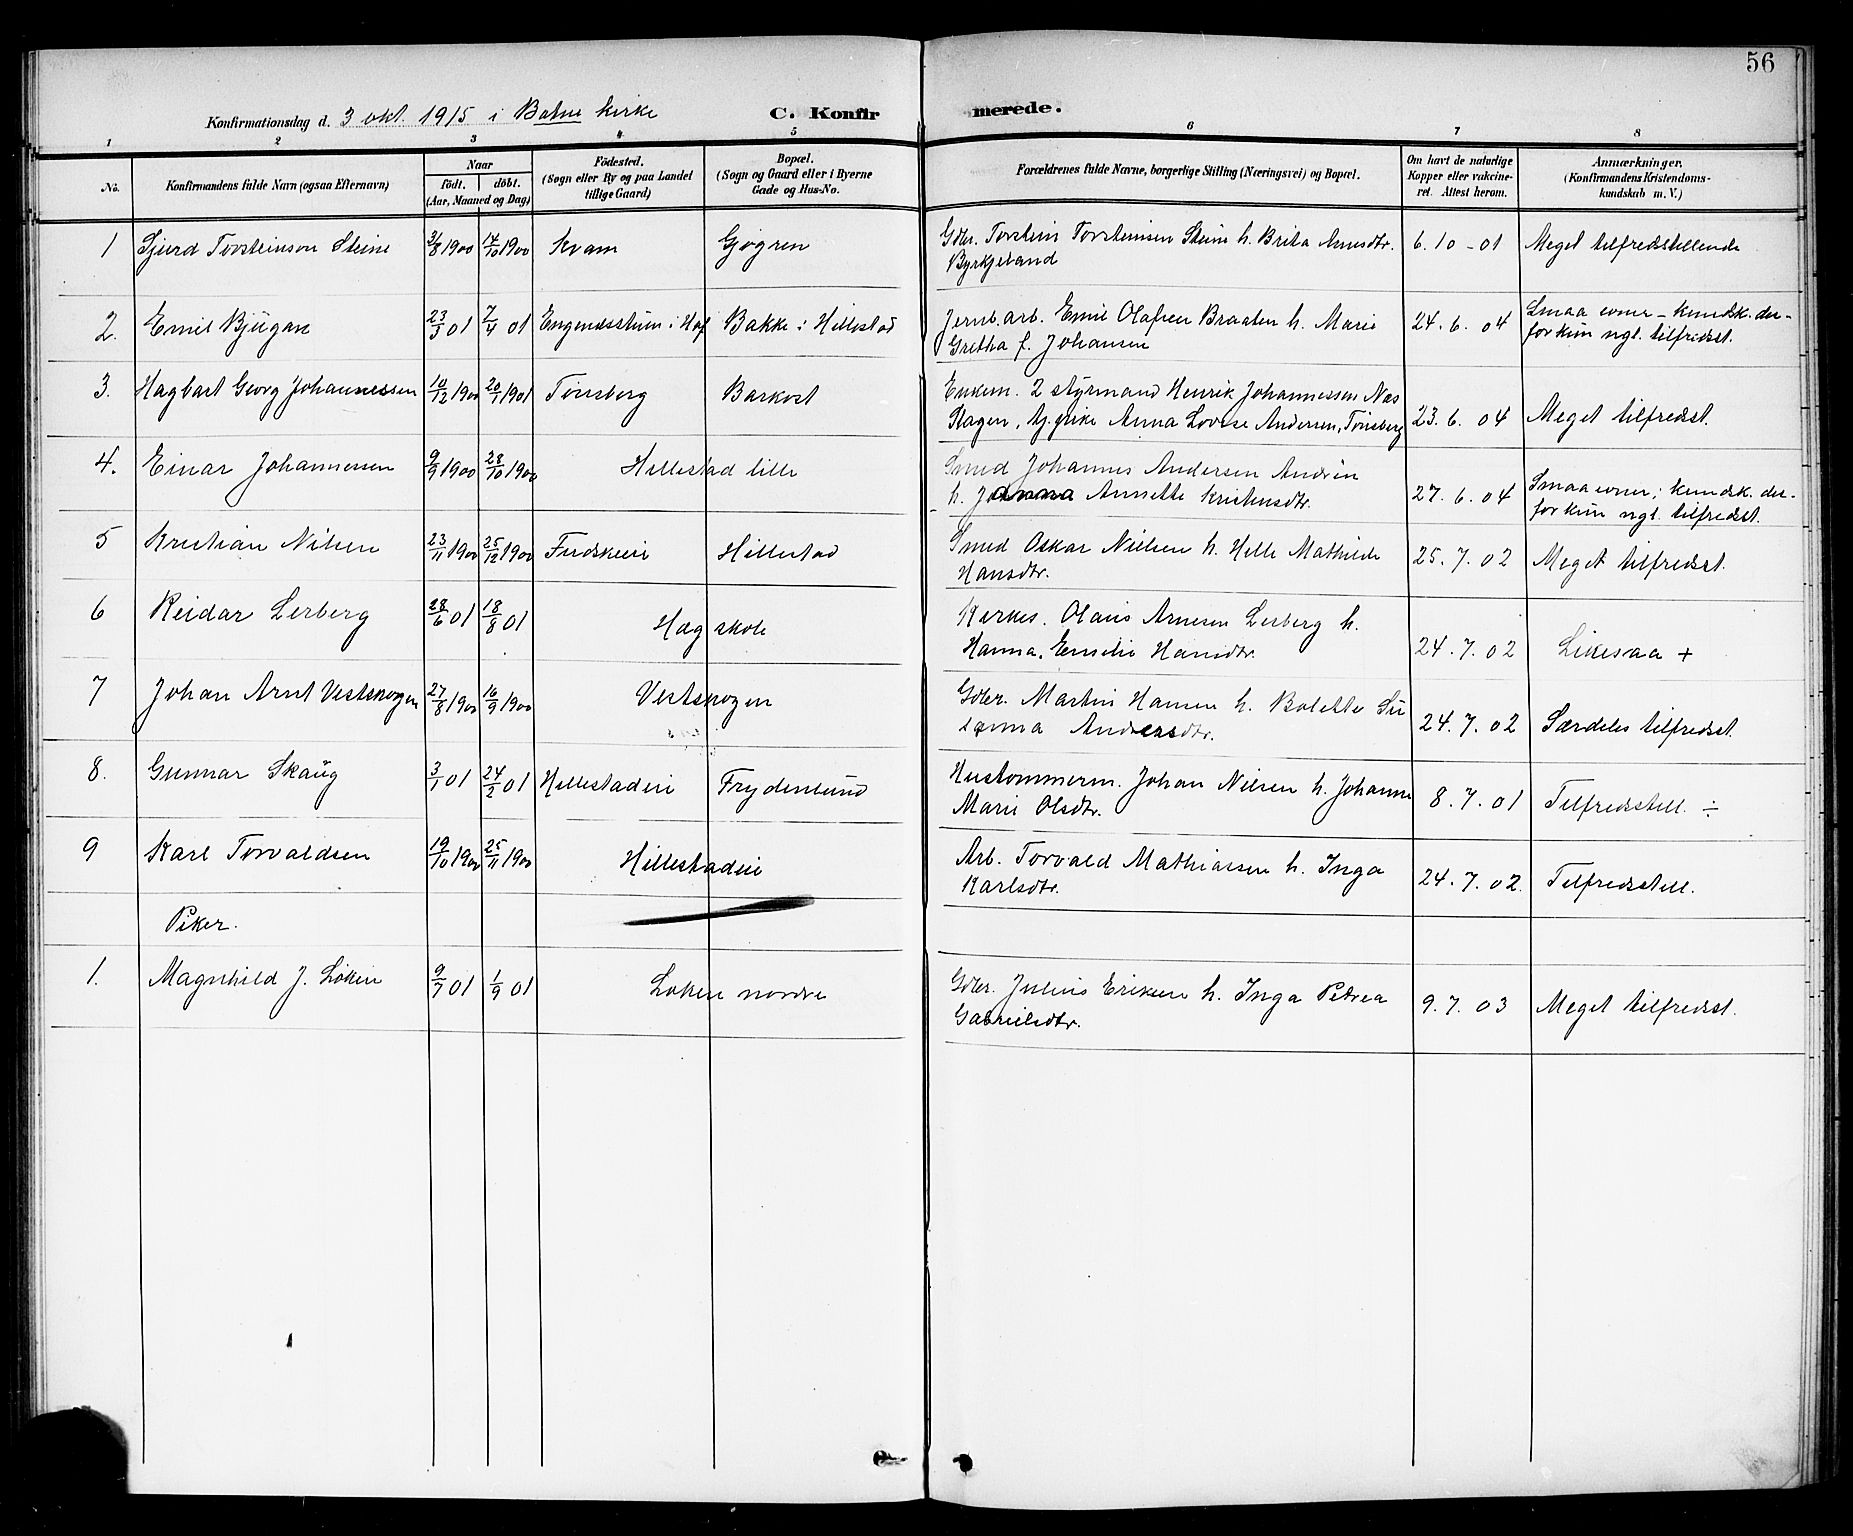 56
Konfirmationsdag d. 3 okt. 1915 i Botne kirke
C. Konfirmerede.
1 2 3 4 5 6 7 8
No.
Konfirmandens fulde Navn (ogsaa Efternavn)
Naar
födt. döbt.
(Aar, Maaned og Dag)
Födested.
(Sogn eller By og paa Landet
tillige Gaard)
Bopæl.
(Sogn og Gaard eller i Byerne
Gade og Hus-No.
Forældrenes fulde Navne, borgerlige Stilling (Næringsvei) og Bopæl.
Om havt de naturlige
Kopper eller vakcine-
ret. Attest herom.
Anmærkninger.
(Konfirmandens Kristendoms-
kundskab m. V.)
1 Sjurd Torsteinson Steine 3/8 1900 14/10 1900 Kvam Gjøgren Gdbr. Torstein Torsteinsen Steine h. Brita Arnesdtr. 6.10-01 Meget tilfredstillende
Byrkjeland
2. Emil Bjugan 23/3 01 7/4 01 i Hof Bakke i Hillestad Jernb.arb. Emil Olafsen Braaten h. Marie 24.6.04 Smaa evner - kundsk. der-
Gretha f. Johansen for kun ngl. tilfredst.
3. Hagbart Georg Johannessen 10/12 1900 20/1 1901 Tønsberg Barkost Enkem. 2 styrmand Henrik Johannessen Næs 23.6.04 Meget tilfredst.
Slagen, Anna Lovise Andersen, Tønsberg
4. Einar Johannessen 9/9 1900 28/10 1900 Hillestad lille Smed Johannes Andersen 27.6.04 Smaa evner; kundsk. der-
h. Johanna Annette Kristensdtr. for kun ngl. tilfredst.
5 Kristian Nilsen 23/11 1900 25/12 1900 Hillestad Smed Oskar Nielsen h. Helle Mathilde 25.7.02 Meget tilfredsst.
Hansdtr.
6 Reidar Lerberg 28/6 01 18/8 01 Hag skole Kirkes. Olaus Arnesen Lerberg h. 24.7.02 Likesaa +
Hanna Emilie Hansdtr.
7 Johan Arnt Vestskogen 27/8 1900 16/9 1900 Vestskogen Gdbr. Martin Hansen h. Bolette Su 24.7.02 Særdeles tilfredst.
sanna Andersdtr.
8. Gunnar Skaug 3/1 01 24/2 01 Hillestadeie Frydenlund Hustømmerm. Johan Nilsen h. Johanne 8.7.01 Tilfredsstill. ÷
Marie Olsdtr.
9 Karl Torvaldsen 19/10 1900 25/11 1900 Hillestadeie Arb. Torvald Mathiassen h. Inga 24.7.02. Tilfredsstill.
Karlsdtr.
Piker.
1. Magnhild J. Løken 9/7 01 1/9 01 Løken nordre Gdbr. Julius Eriksen h. Inga Petrea 9.7.03 Meget tilfredsst.
Gabrielsdtr.